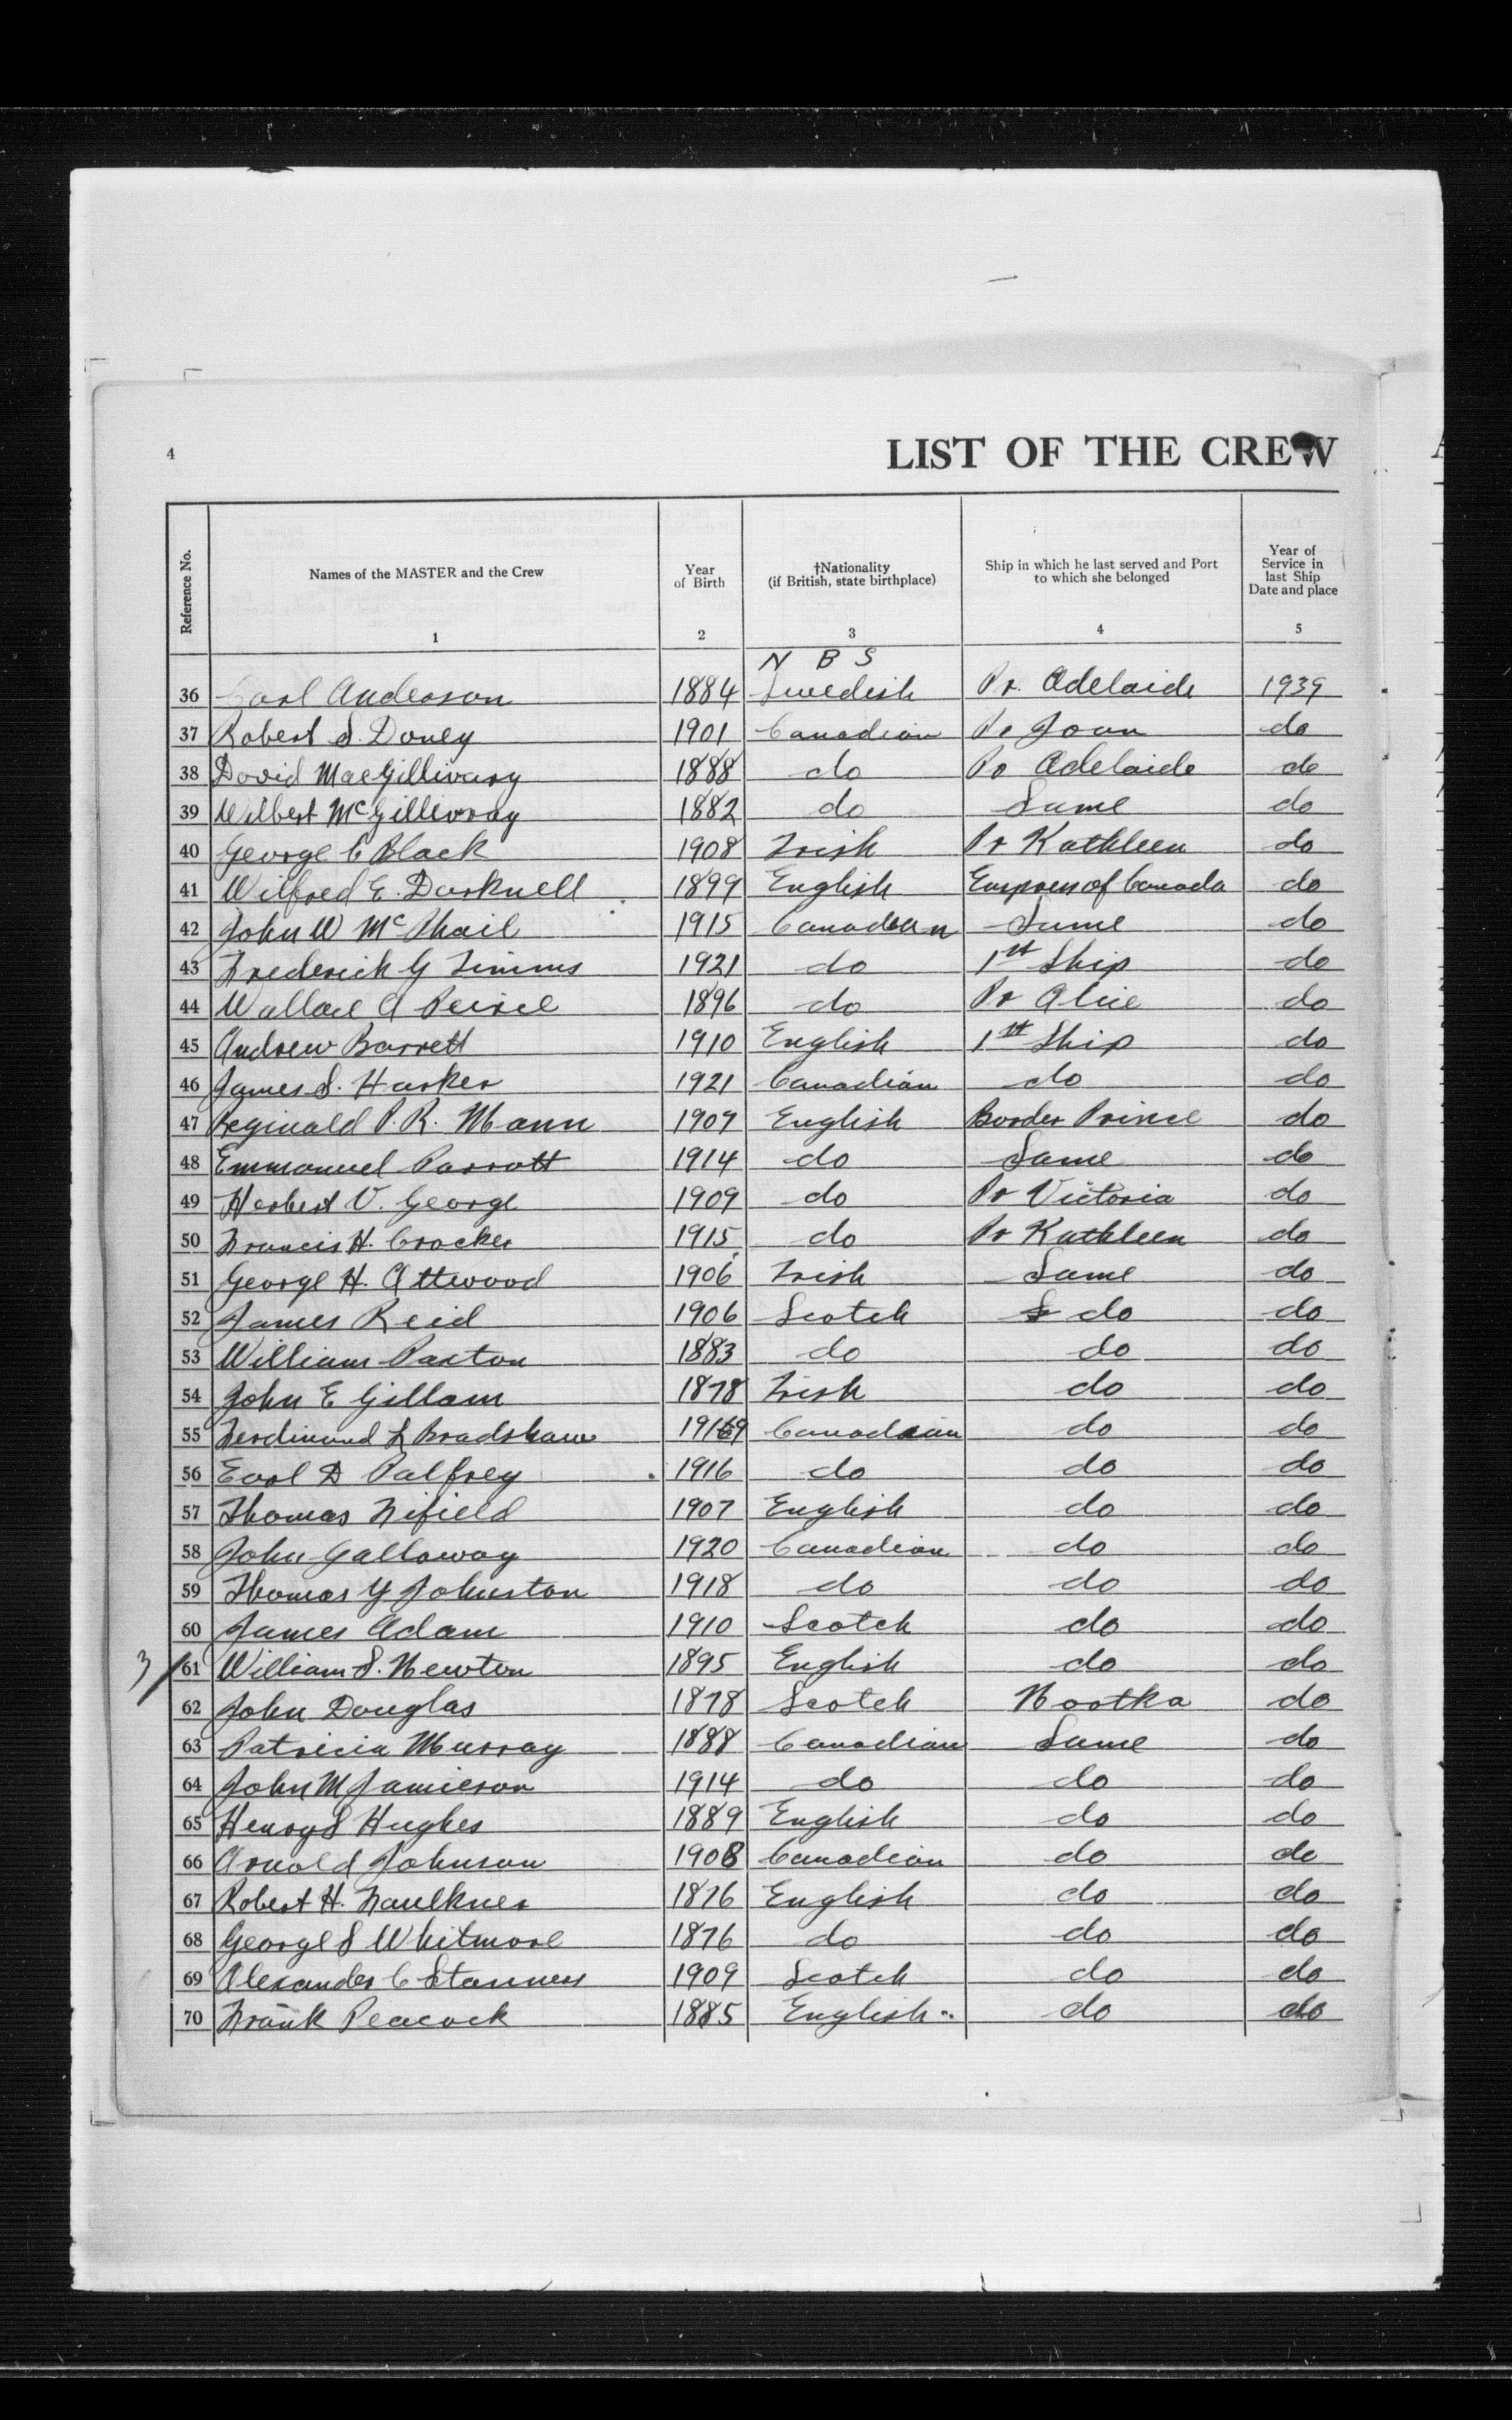 4
LIST OF THE CREW
Reference No.
Names of the MASTER and the Crew
1
Year of Birth
2
†Nationality (if British, state birthplace)
3
Ship in which he last served and Port to which she belonged
4
Year of Service in last Ship Date and place
5
N B S
36 Carl Anderson 1884 Swedish Pr. Adelaide 1939
37 Robert S. Doney 1901 Canadian Pr Joan do
38 David MacGillivary 1888 do Pr Adelaide do
39 Wilbert McGillivray 1882 do Same do
40 George C Black 1908 Irish Pr Kathleen do
41 Wilfred E. Darknell 1899 English Empress of Canada do
42 John W McPhail 1915 Canadian Same do
43 Frederick G Timms 1921 do 1st Ship do
44 Wallace A Peirce 1896 do Pr Alice do
45 Andrew Barrett 1910 English 1st Ship do
46 James S. Harker 1921 Canadian do do
47 Reginald P. R. Mann 1907 English Border Prince do
48 Emmanuel Parrott 1914 do Same do
49 Herbert V. George 1909 do Pr Victoria do
50 Francis H. Crocker 1915 do Pr Kathleen do
51 George H. Attwood 1906 Irish Same do
52 James Reid 1906 Scotch do do
53 William Paxton 1883 do do do
54 John E Gillam 1878 Irish do do
55 Ferdinand L Bradshaw Canadian do do
56 Earl D Palfrey 1916 do do do
57 Thomas Fifield 1907 English do do
58 John Galloway 1920 Canadian do do
59 Thomas Y Johnston 1918 do do do
60 James Adam 1910 Scotch do do
3/ 61 William S. Newton 1895 English do do
62 John Douglas 1878 Scotch Nootka do
63 Patricia Murray 1888 Canadian Same do
64 John M Jamieson 1914 do do do
65 Henry S Hughes 1889 English do do
66 Arnold Johnson 1908 Canadian do do
67 Robert H. Faulkner 1876 English do do
68 George S Whitmore 1876 do do do
69 Alexander C Stanners 1909 Scotch do do
70 Frank Peacock 1885 English do do